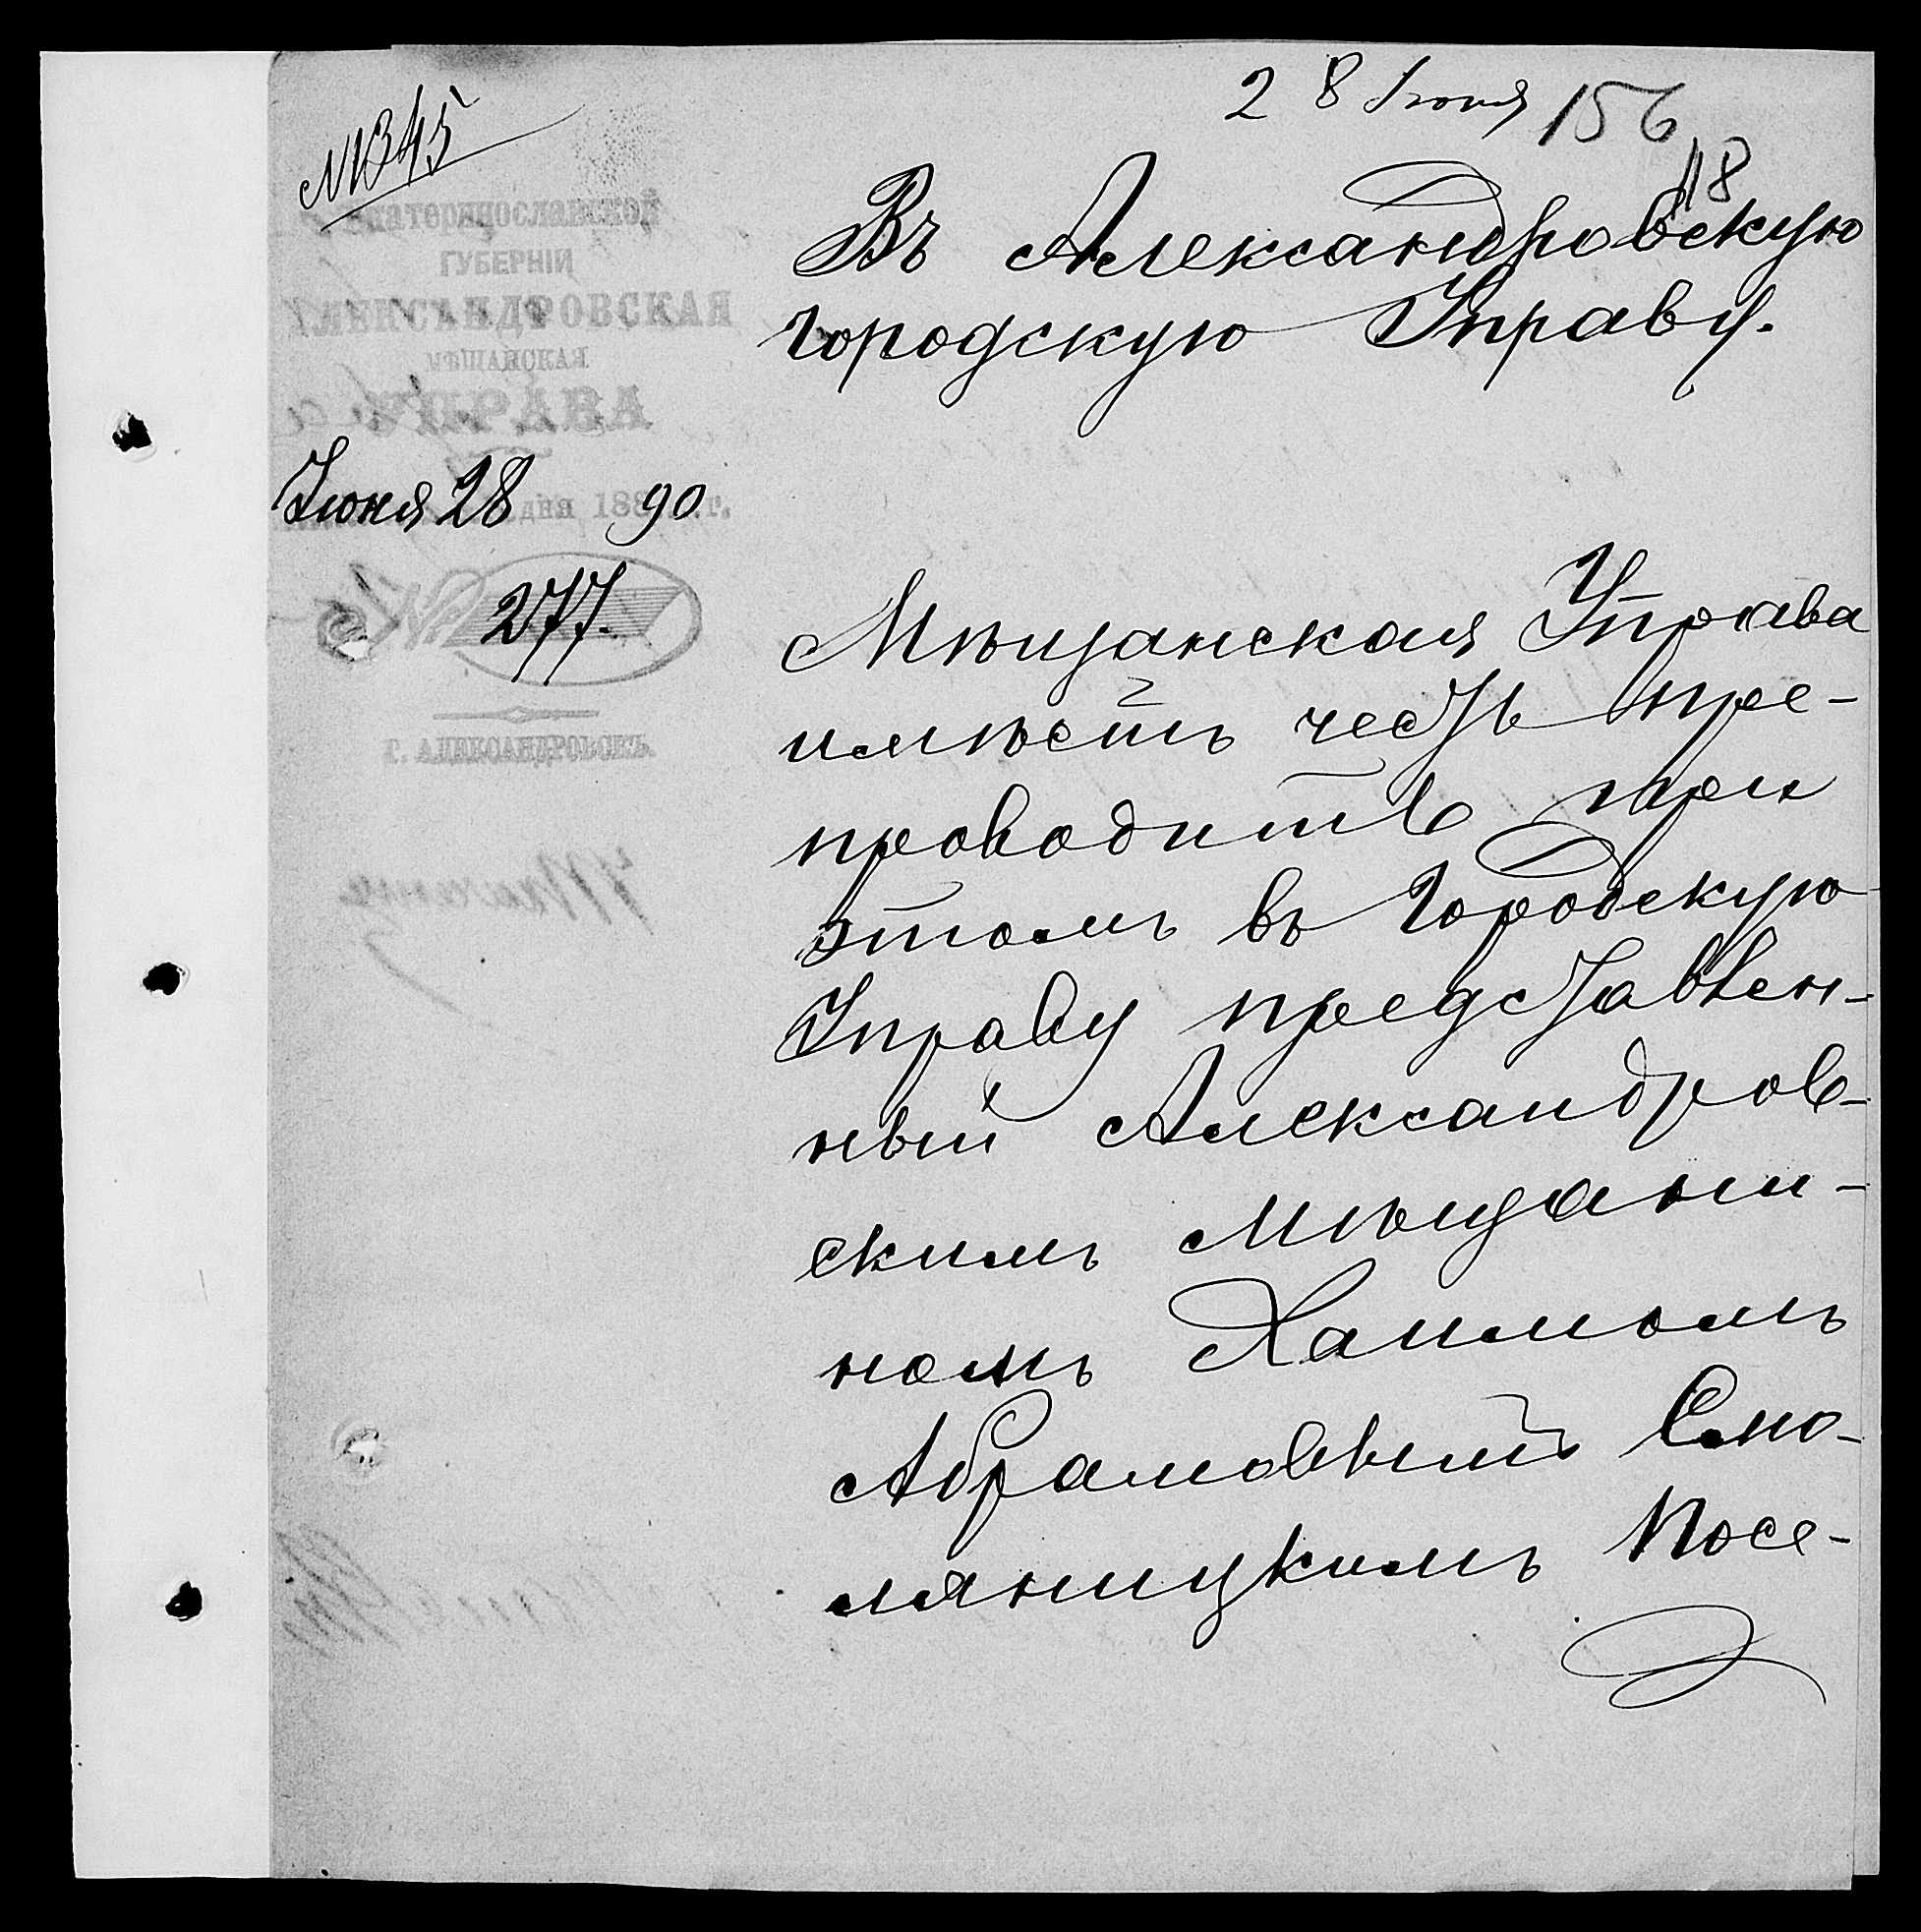 28 Июня 156
118
№1345
Екатеринославской
ГУБЕРНІИ
АЛЕКСАНДРОВСКАЯ
МѢЩАНСКАЯ
УПРАВА
Июня 28 дня 1890 г.
№ 277.
Г. АЛЕКСАНДРОВСКЪ.
Въ Александровскую
Городскую Управу.
Мѣщанская Управа
имѣетъ честь пре-
проводить при
этомъ въ Городскую
Управу представлен-
ный Александров-
скимъ мѣщани-
номъ Хаимомъ
Абрамовымъ Смо-
ляницкимъ Посе-